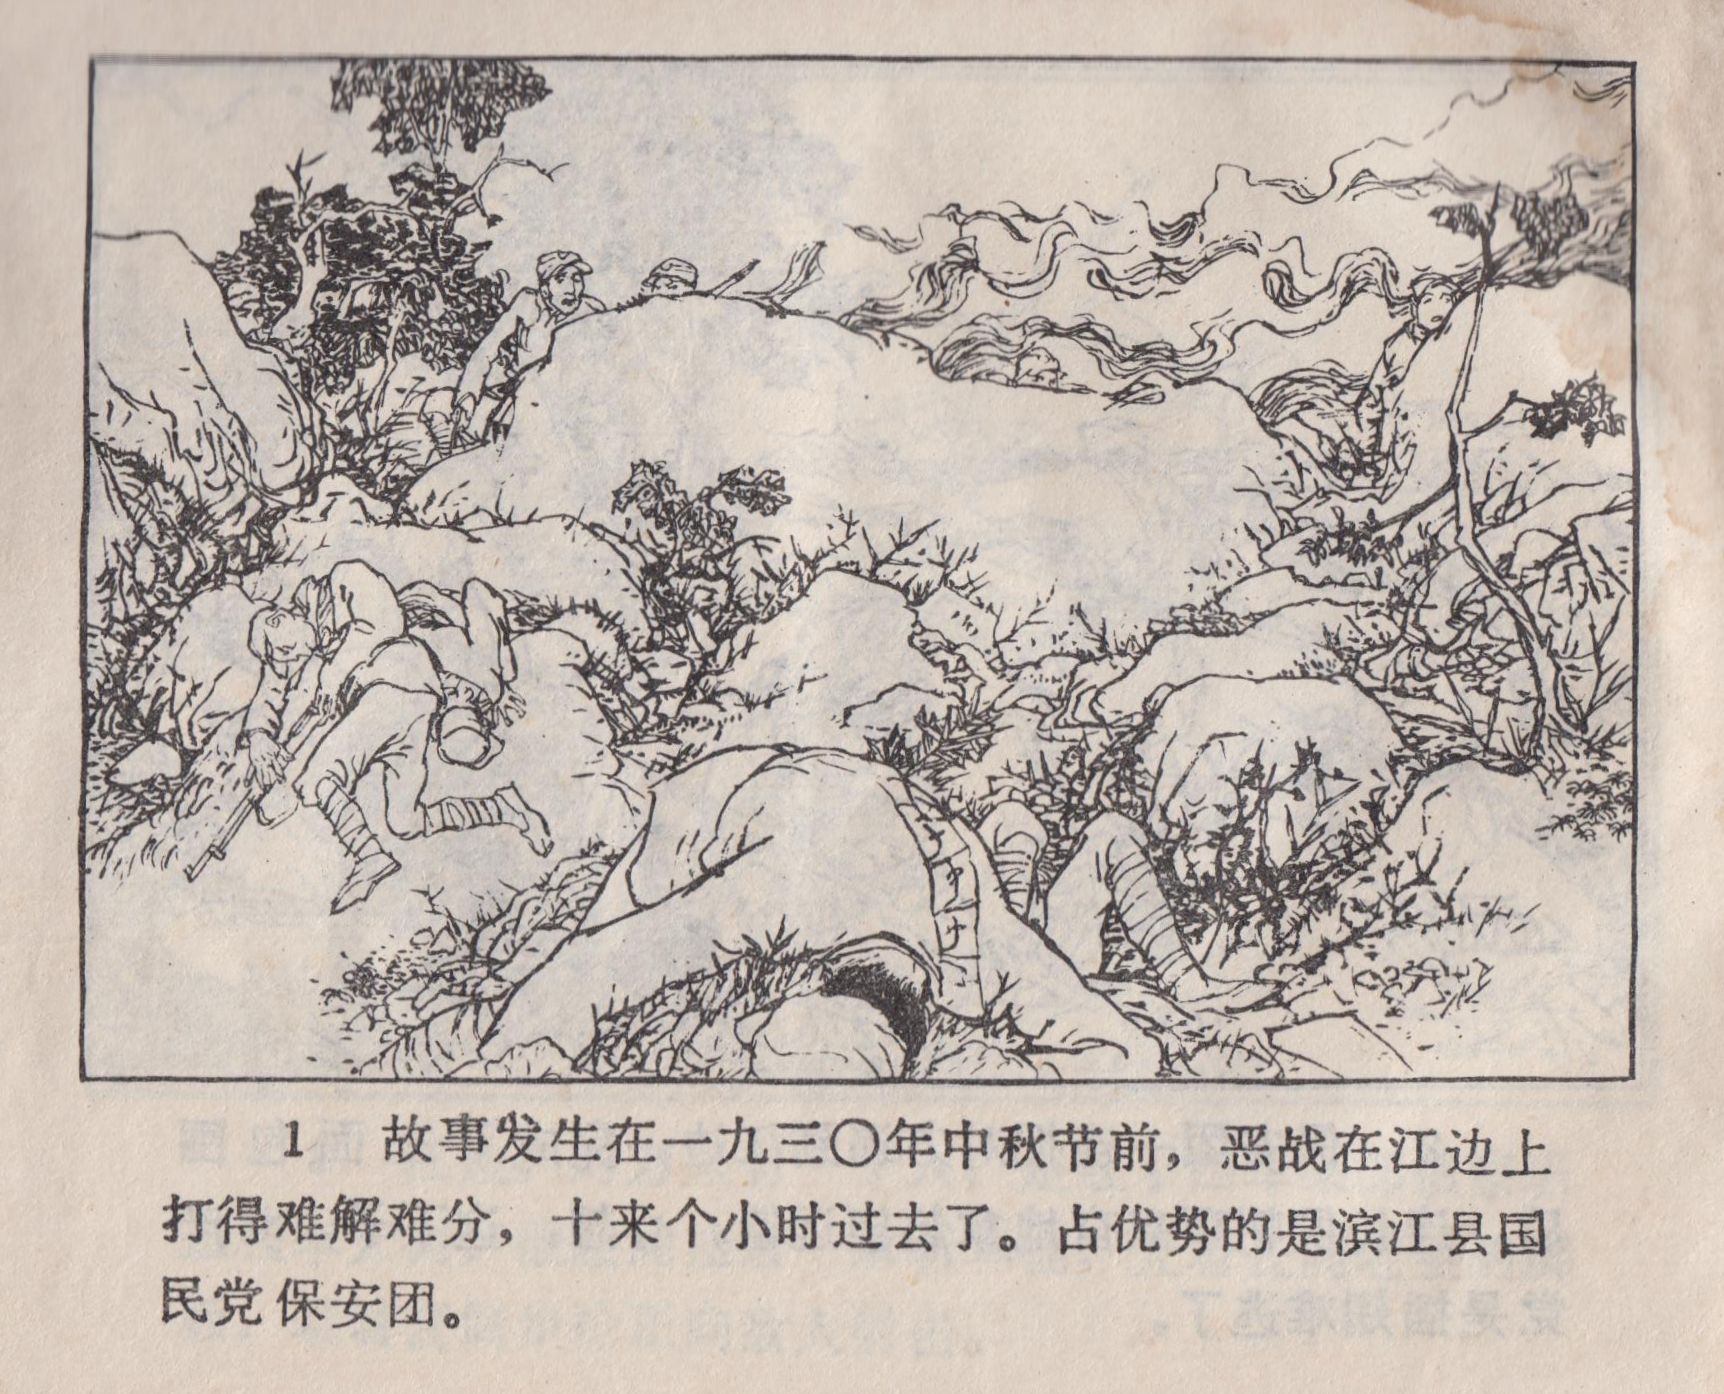 1 故事发生在一九三〇年中秋节前，恶战在江边上
打得难解难分，十来个小时过去了。占优势的是滨江县国
民党保安团。